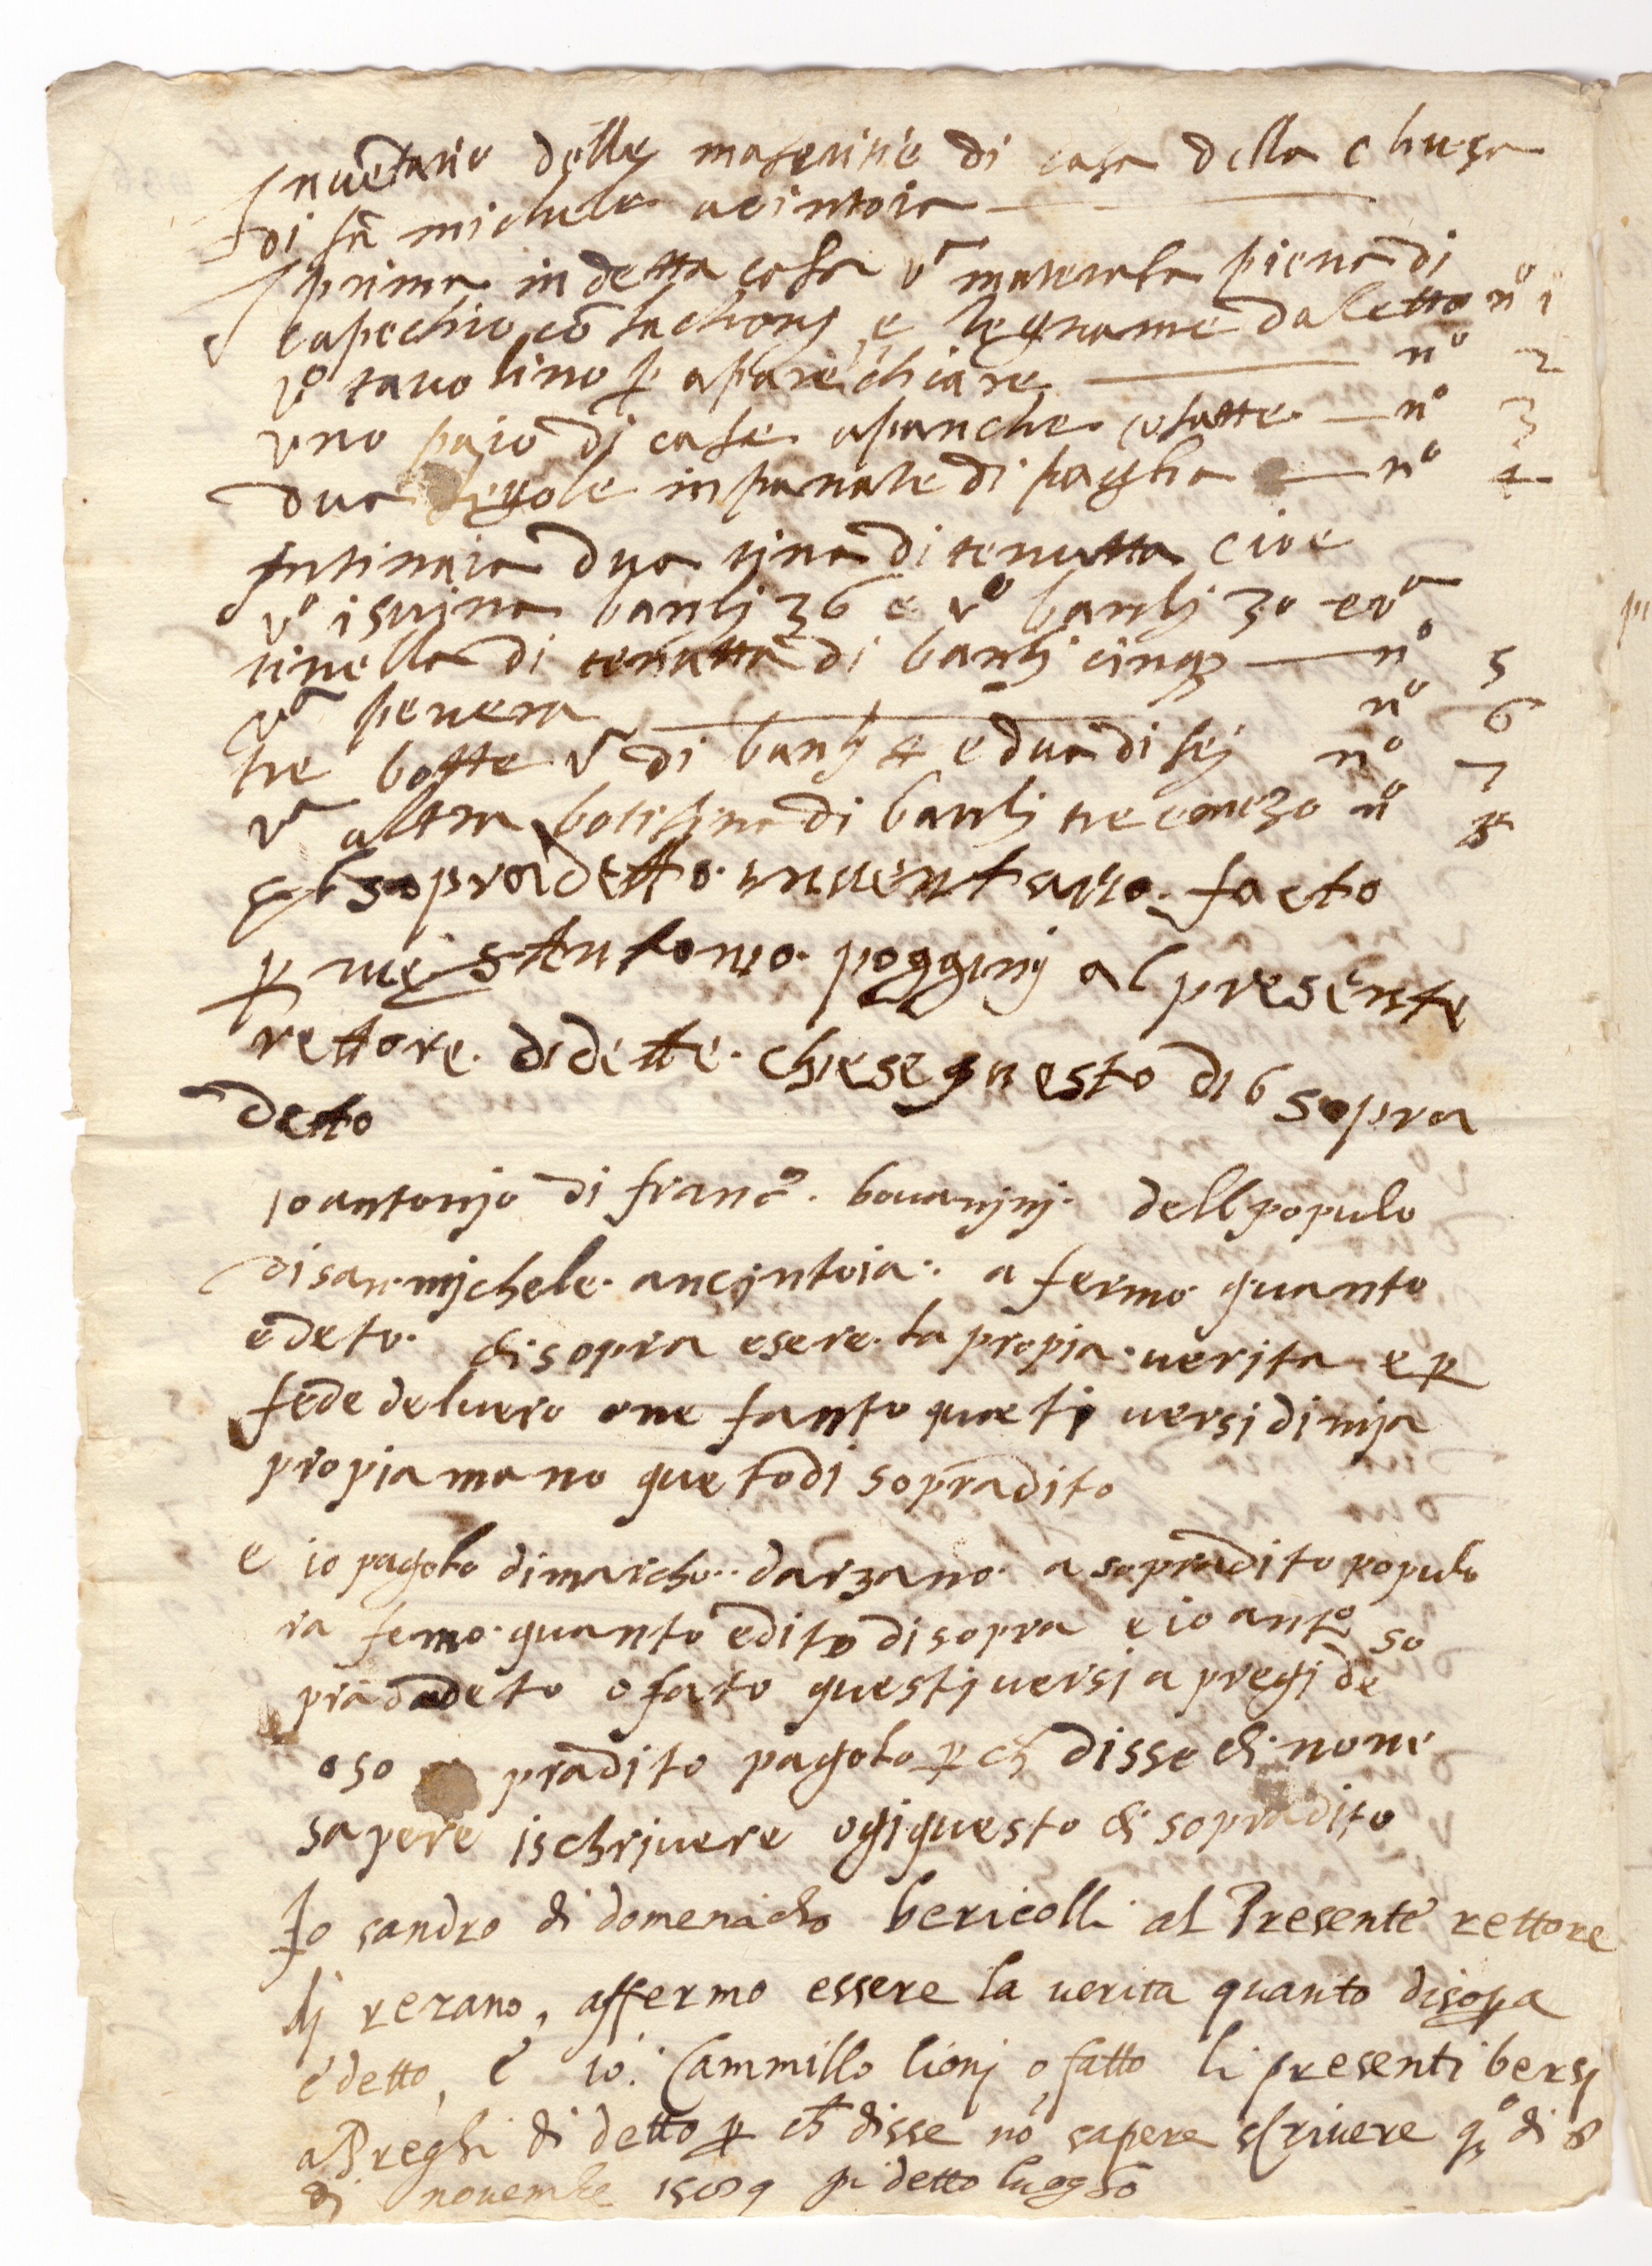 Inuētario delle maserizie di casa della chiesa
di sā michele acintoia
Iprima in detta casa vª materasa piena di
capechio cō sachonj e legname daletto nº 1
vº tauolino p aparechiare nº 2
uno paio di case apanche cofatte nº 3
dua segole inpanate di paglia nº 4
Intinaia dua tina di tenutta cioe
vº isuina barilj 36 e vº barilj 30 e vª
tinella di tenutta di barilj cinqz nº 5
vª peuera nº 6
tre botte vª di barilj 4 e dua di sej nº 7
vª altra botisina di barilj tre emezo nº 8
sopradetto inuentario facto
p me s Antonio pogginj al presente
rettore didette chiese questo di 6 sopra
detto
io antonjo di francº bouanjnj dell popolo
di san mjchele ancjntoia a fermo quanto
edeto disopra esere la propia uerita e p
fede deluero one fanto queti uersi di mja
propia mano quetodi sopradito
e io pagolo dimarcho darzano a sopradito popolo
ra femo quanto edito disopra e io antº so
pradadeto o fato questj uersi a pregi de
oso pradito pagolo p ch disse di none
sapere ischriuere ogi questo di sopradito
Io sandro di domenicho bericolli al Presente rettore
dj rezano, affermo essere la uerita quanto disopra
e detto, e io Cammillo lionj o fatto li presenti bersj
a Preghi di detto p ch disse nō sapere scriuere qº di 8
di nouembre in detto luogho